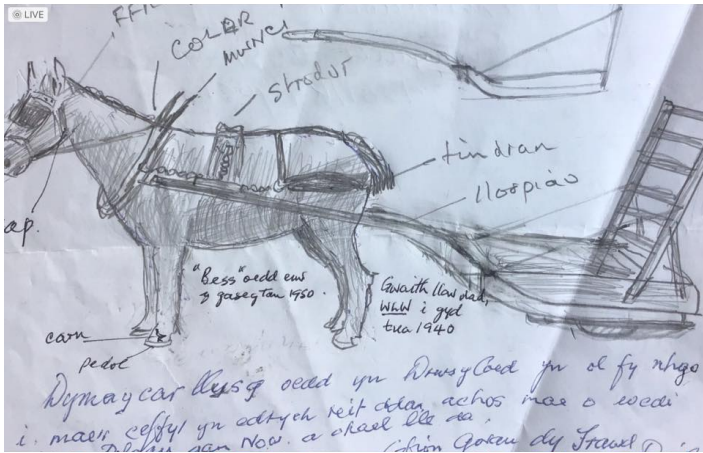 LIVE
COLAR
MWNCI
strodur
tindran
llorpiau
"Bess" oedd enw
y gaseg tan 1950.
Gwaith llaw dad,
WLW i gyd
tua 1940
carn
pedol
Dyma y car llusg oedd yn Drws y Coed yn ol fy nhgo
i. mae'r ceffyl yn edrych reit dda achos mae o wedi
gan Now. a chael lle da.